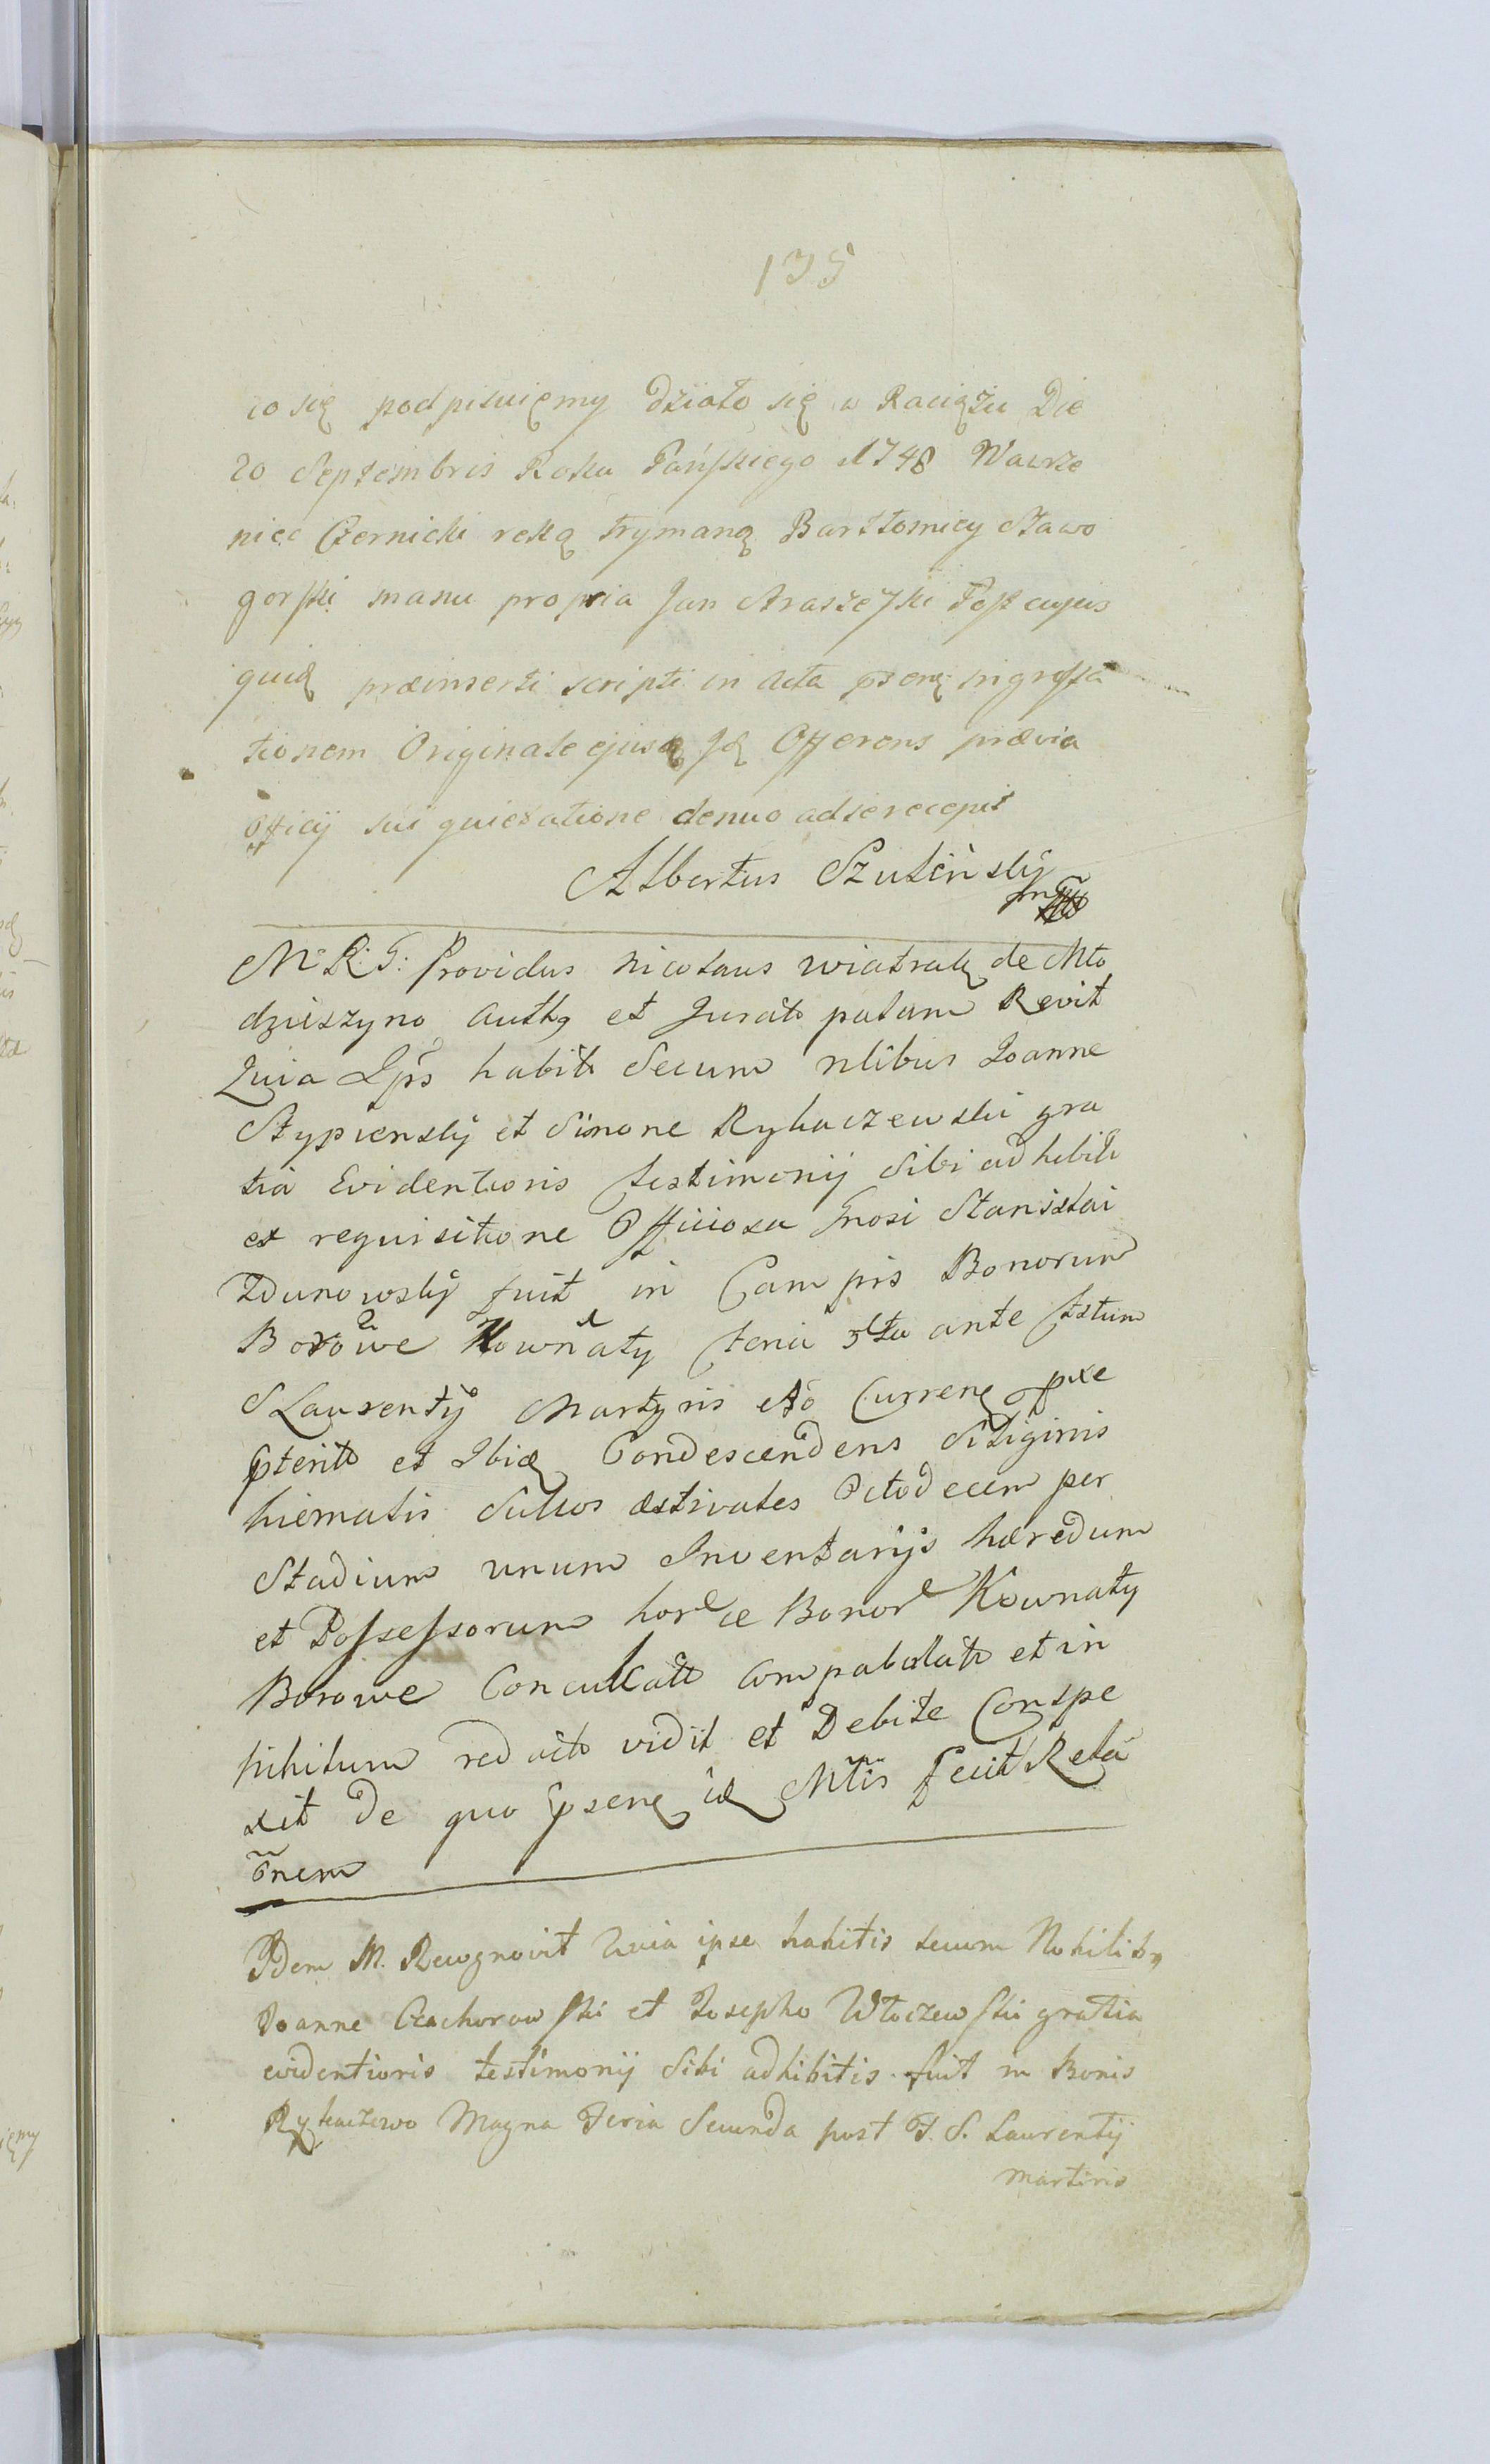 135
co się podpisuięmy działo się w Raciążu Die
20 Septembris Roku Pańskiego 1748 Wawrze
niec Czernicki ręką trzymaną Barttomiey Sławo
gorski manu propria Jan Araszeski Post cujus
quid præinserti scripti in acta pseng ingrossa
tionem Originale ejusd Id Offerens prævia
Officÿ sui quietatione denuo ad se recepit
Albertus Szuleński
Mo R: G: Providus Nicolaus Wiatrak de Mło
dzieszyno auth9 et Jurats palam Revit
Quia Ips habits Secum nlibus Joanne
Stypienskÿ et Simone Rykaczewski gra
tia Evidentioris testimonÿ Sibi adhibits
ex requisitione Officiosa Gnosi Stanislai
Zdunowskÿ fuit in Campis Bonorum
Borowe Kownaty feria 5ta ante fstum
S Laurentÿ Martyris Ao Curren pxe
pterito et Ibid Condescendens Siliginis
hiemalis Sulcos æstivales Octodecem per
Stadium unum Inventarÿs hæredum
et Possessorum horce Bonor Kownaty
Borowe Conculcats compabulats et in
nihilum redacts vidit et Debite Conspe
xit De quo psens id Mtis fecit Rela
õnem
Idem M. Recognovit Quia ipse habitis secum Nobilib9
Joanne Czachorowski et Josepho Włoczewski gratia
evidentioris testimonÿ Sibi adhibitis fuit in Bonis
Rykaczewo Magna Feria Secunda post F. S. Laurentÿ
martiris